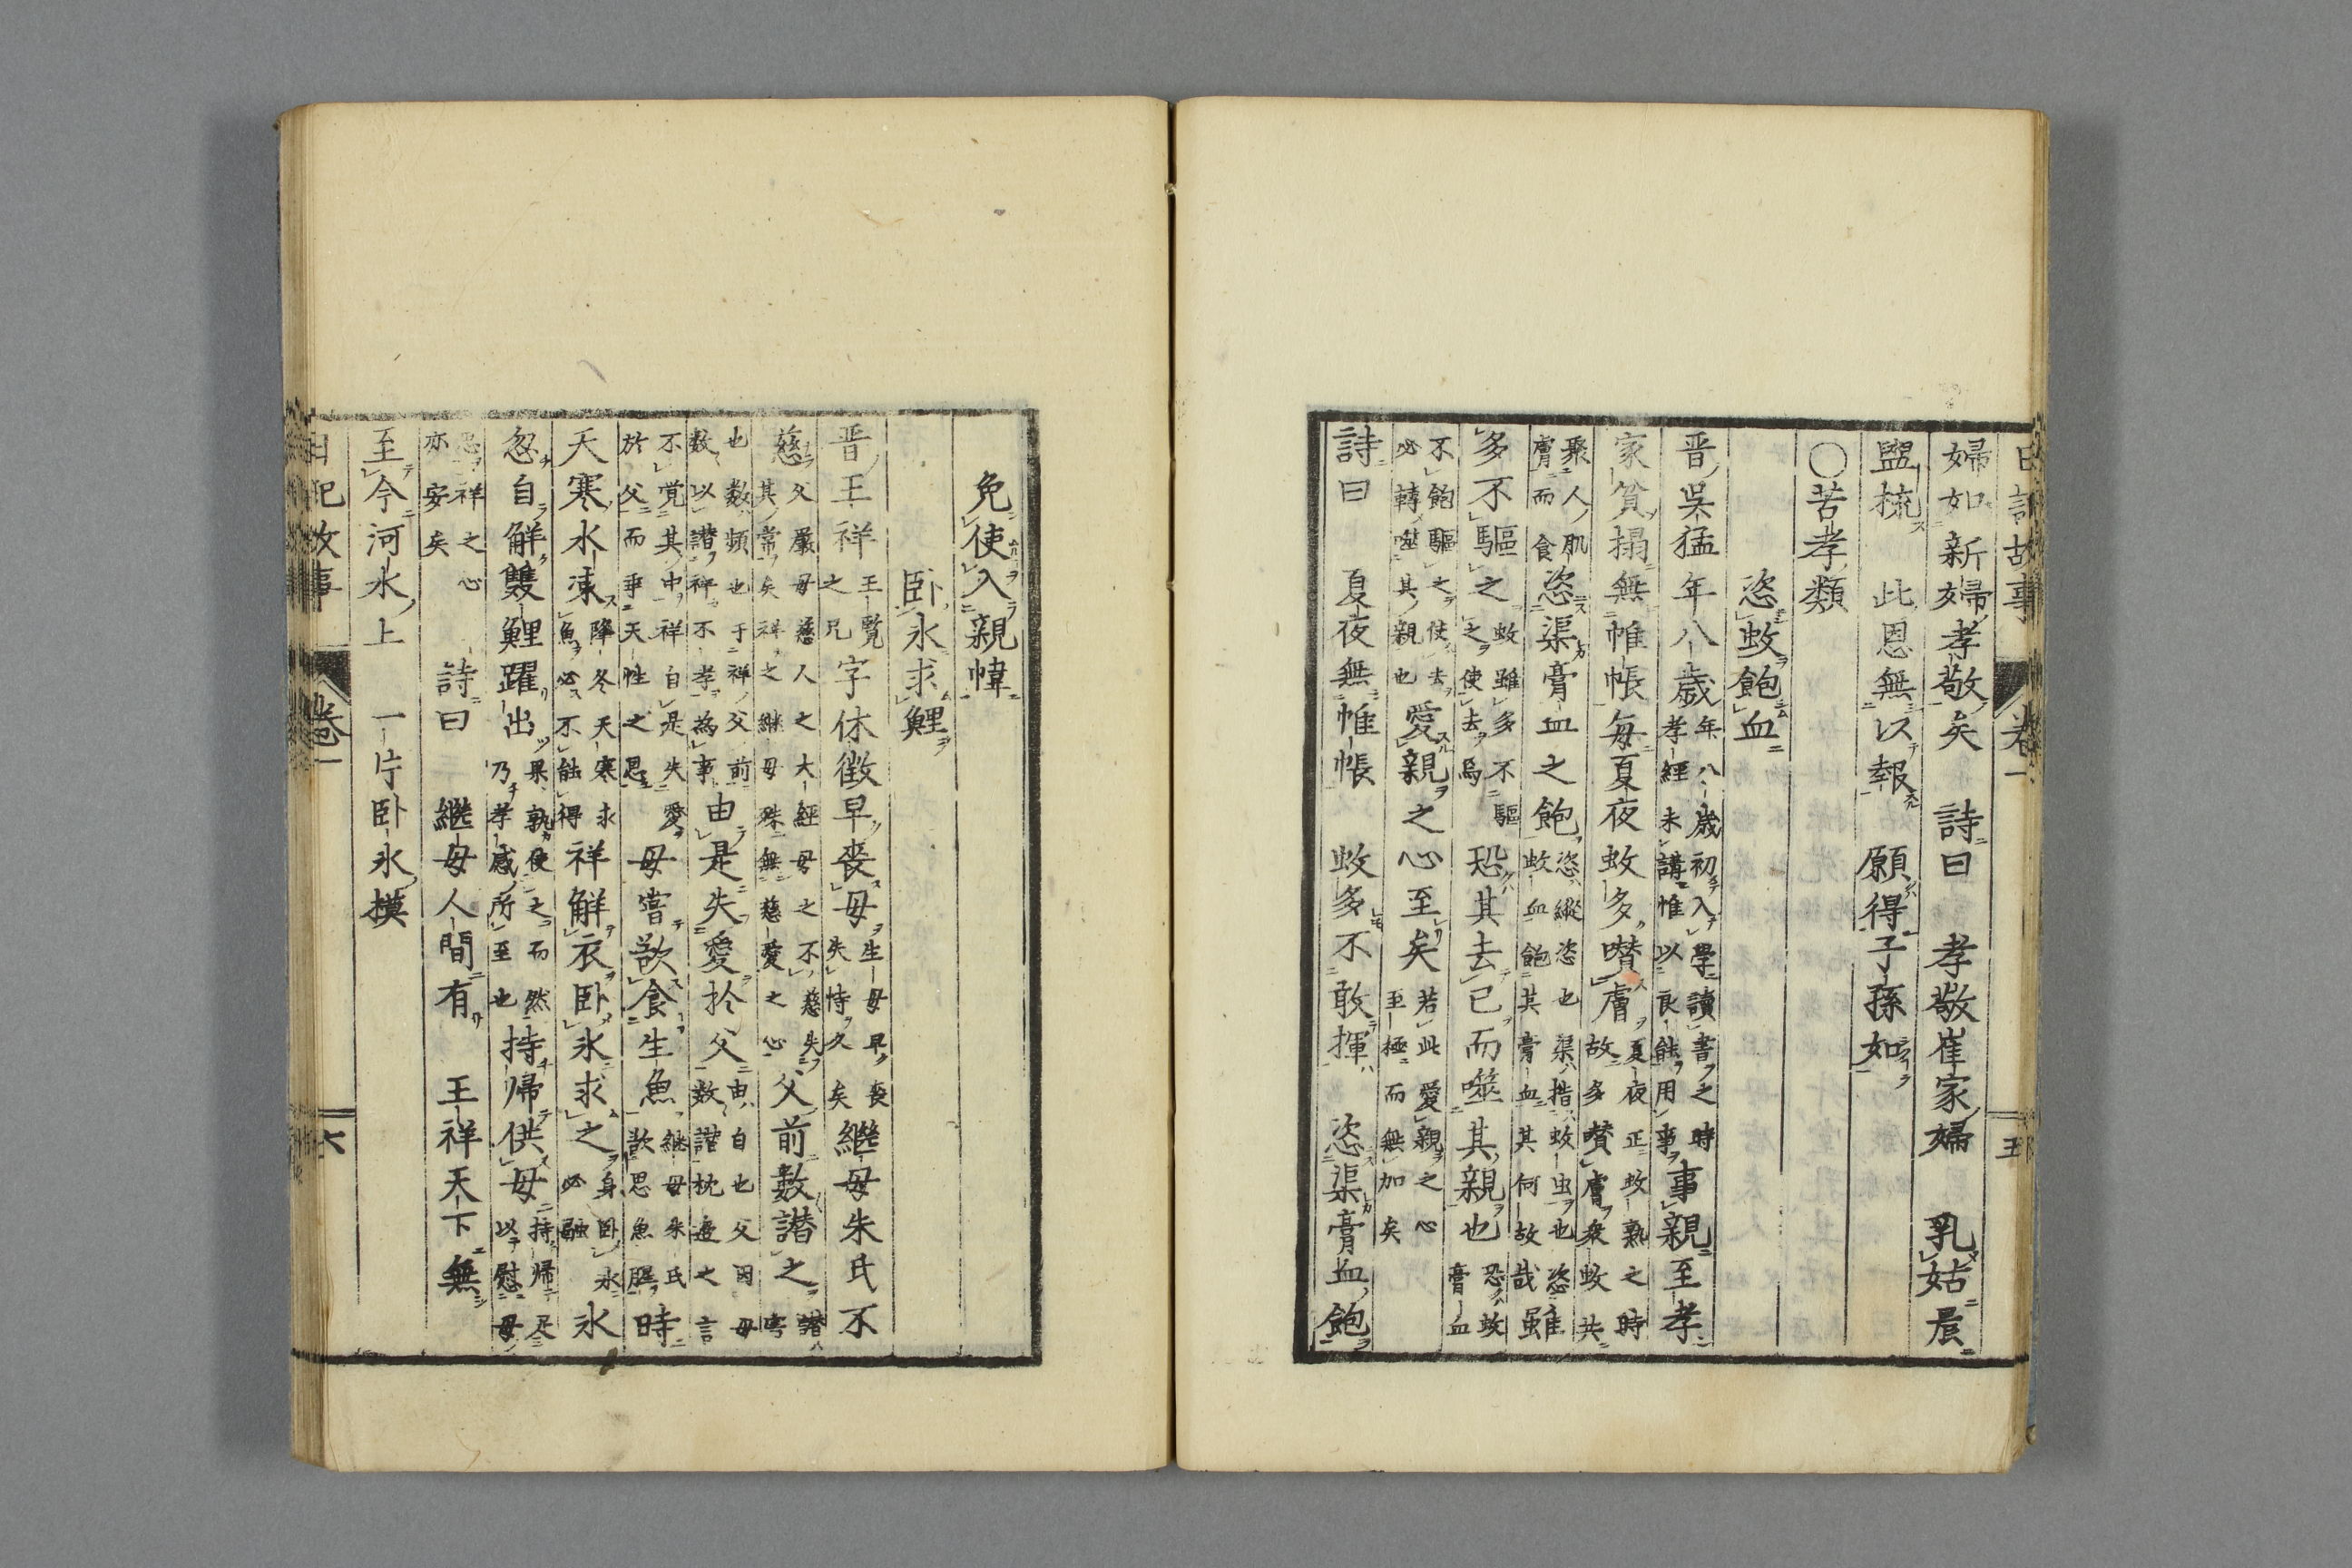 日記故事 卷一 五
婦如新婦孝敬矣 詩曰 孝敬崔家婦 乳姑晨
盥梳 此恩無以報 願得子孫如
〇苦孝類
恣蚊飽血
晋吳猛年八歲年八歲初入學讀書之時孝經未講惟以良蝕用事事親至孝
家貧搨無帷帳每夏夜蚊多噆膚夏夜正蚊熟之時故多噆膚衆蚊共
聚人肌膚而食恣渠膏血之飽恣縱恣也渠指蚊虫也恣蚊血飽其膏血其何故哉雖
多不驅之蚊雖多不驅之使去焉恐其去已而噬其親也恐蚊膏血
不飽驅之使去必轉噬其親也愛親之心至矣若此愛親之心至極而無加矣
詩曰 夏夜無帷帳 蚊多不敢揮 恣渠膏血飽
免使入親幃
臥氷求鯉
晋王祥王覧之兄字休徴早喪母生母早喪失恃久矣継母朱氏不
慈父嚴母慈人之大經母之不慈失其常矣祥之継母殊無慈愛之心父前數譖之譖
也數頻也于祥父前数以譖祥不孝為事由是失愛於父由自也父因母数譖枕邊之言
不覚其中祥自是失愛於父而乖天性之恩母嘗欲食生魚継母朱氏欲思魚腥時
天寒氷凍降冬天寒求魚必不能得祥解衣臥氷求之身臥氷必融氷
忽自解雙鯉躍出果孰使之而然乃孝感所至也持帰供母持帰以慰母
祥之心亦安矣 詩曰 継母人間有 王祥天下無
至今河水上 一片臥氷模
日記故事 卷一 六